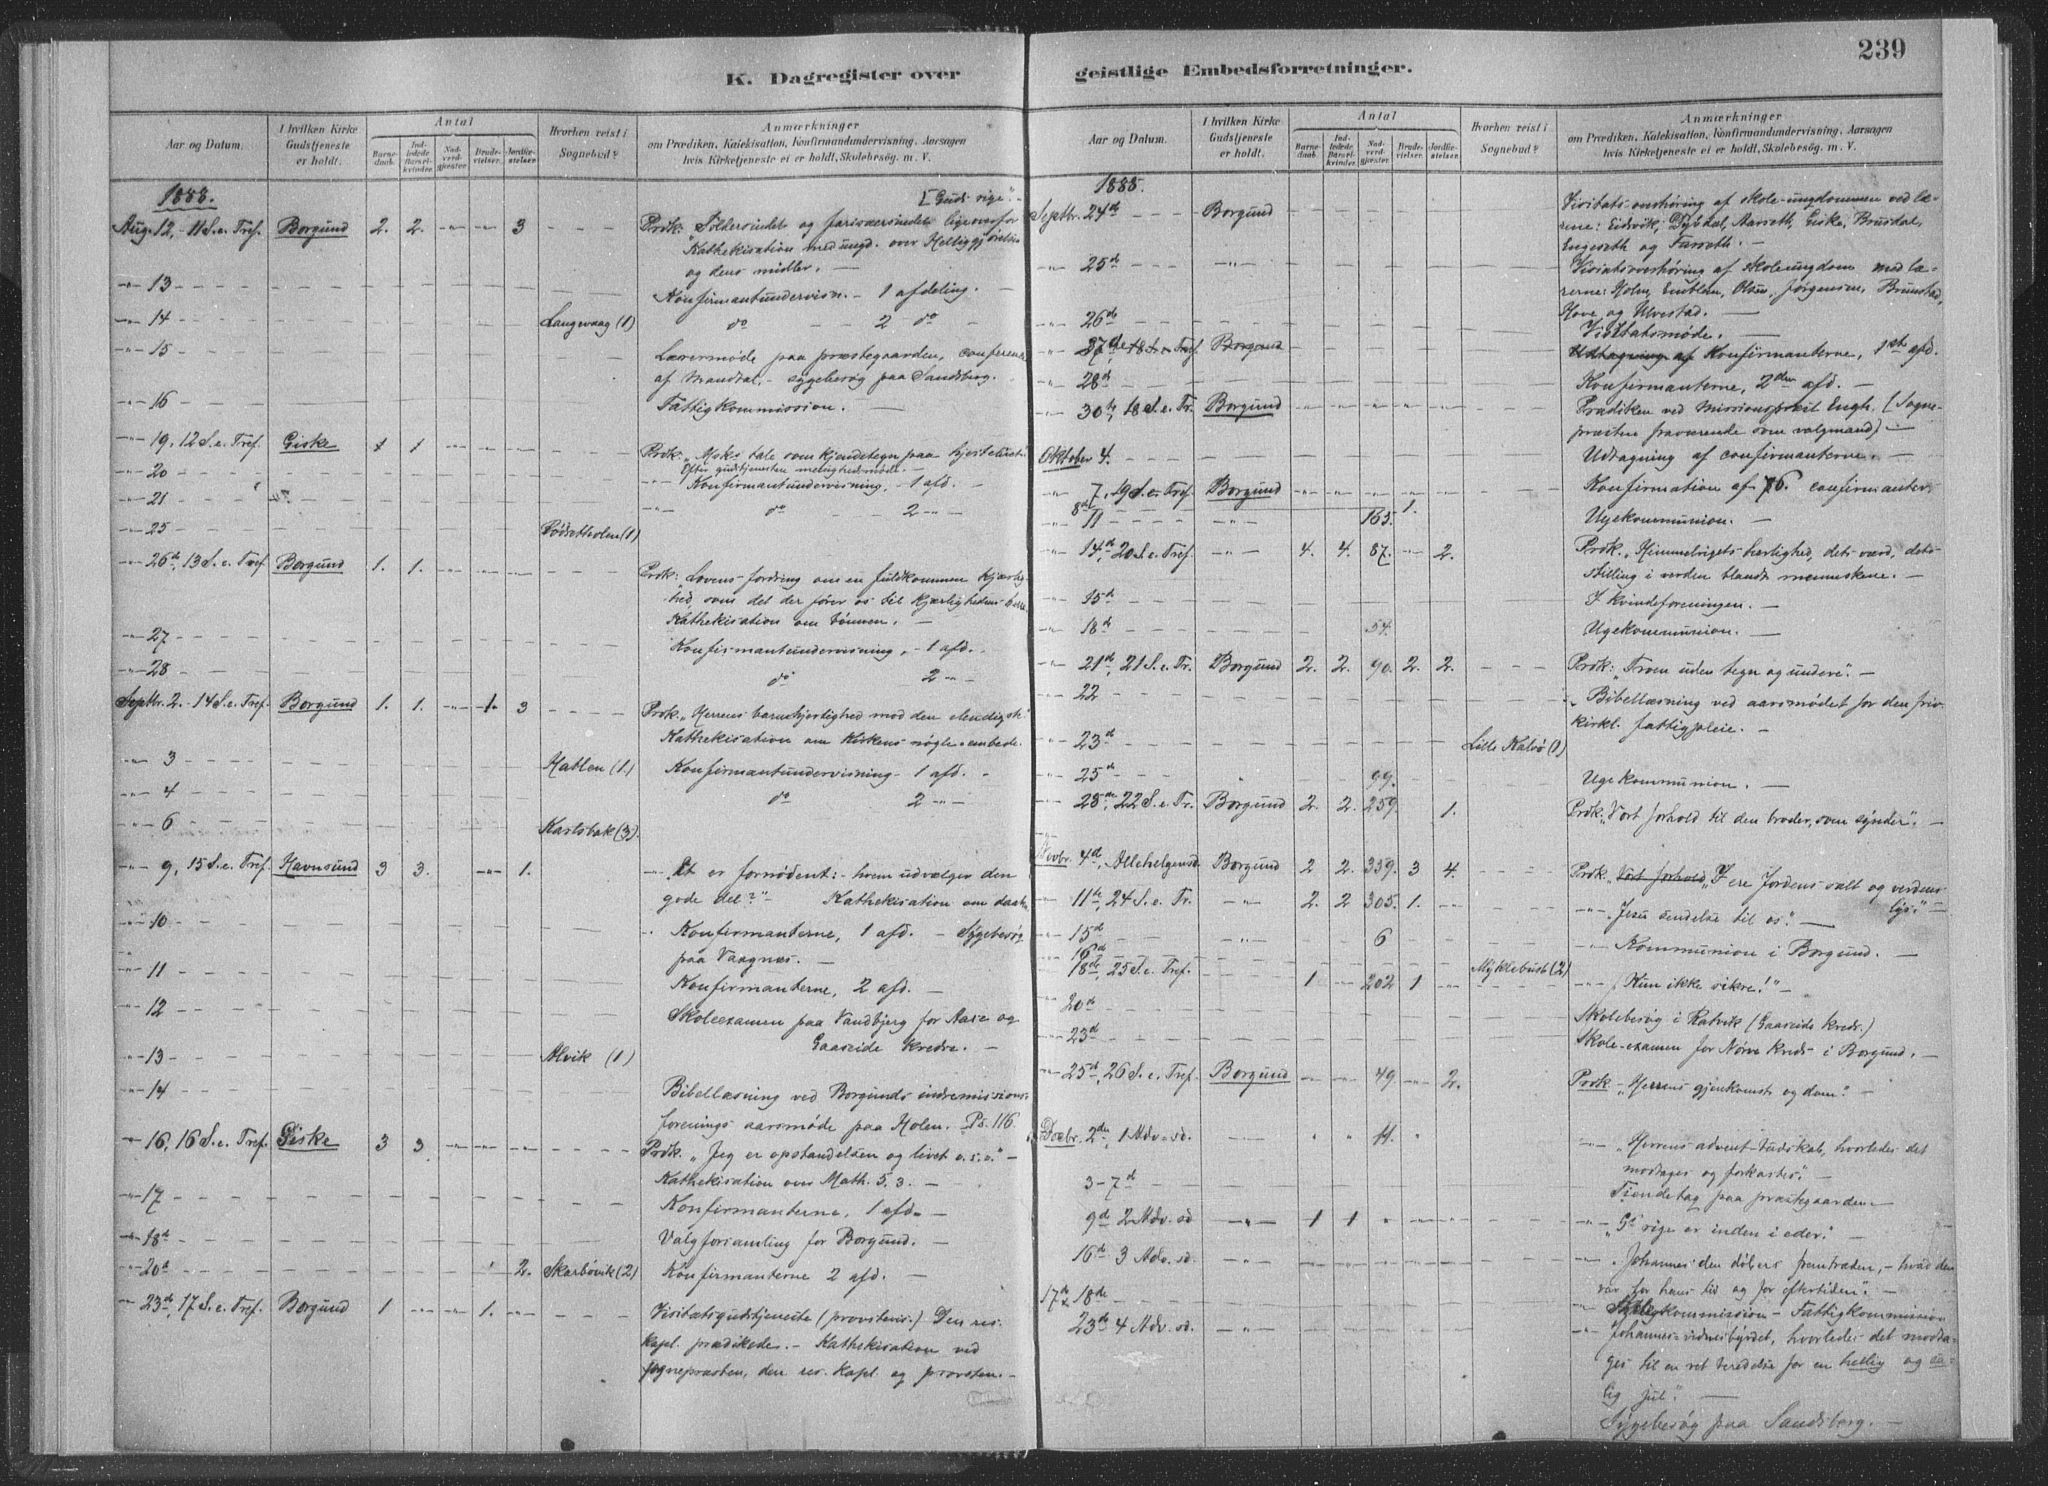 239
K. Dagregister over
Aar og Datum.
I hvilken Kirke Gudstjeneste er holdt.
Antal
Barnedaab.
Indledede Barselkvinder.
Nadverdgjester.
Brudevielser.
Jordfæstelser.
Hvorhen reist i Sognebud?
Anmærkninger
om Prædiken, Katekisation, Konfirmandundervisning, Aarsagen
hvis Kirketjeneste ei er holdt, Skolebesøg m. V.
1888. [Guds rige".
Aug. 12, - 11 S. e. Tref. Borgund 2. 2. -"- -"- 3 Prdk: "Toldersindet og farisæersindet ligeoverfor
Kathekisation med ungd. over Helliggjørelsen
og dens midler. —
-"- 13 Konfirmantundervisn. - 1 afdeling. —
-"- 14 Langevaag (1) do - 2 do -
-"- 15 Lærermøde paa præstegaarden, conference
af Mandtal, - sygebesøg paa Sandsberg.
-"- 16 Fattigkommission. —
-"- 19, 12 S. e. Tref. Giske 1 1 -"- -"- -"- Prdk. "
Efter gudstjenesten menighedsmøde. -
-"- 20 Konfirmantundervisning, - 1 afd. -
-"- 21 do 2 -"-
-"- 25 (1)
-"- 26de, 13 S. e. Tref. Borgund 1. 1. -"- -"- -"- Prdk: "Lovens fordring om en fuldkommen kjærlighed,
som det der fører os til kjærlighedens
Kathekisation om bønnen. -
-"- 27 Konfirmantundervisning, - 1 afd.
-"- 28 do 2 -"-
Septbr. 2. - 14 S. e. Tref. Borgund 1. 1. -"- 1. 3 Prdk. "Herrens barmhjertighed mod den elendigste
Kathekisation om kirkens nøgle-embede.
-"- 3 Hatlen (1.) Konfirmantundervisning - 1 afd. -
-"- 4 do 2 -"-
-"- 6 Karlsbak (3).
-"- 9, 15 S. e. Tref. Havnsund 3 3. -"- 1. -"- "Et er fornødent: - hvem udvælger den
gode del?" - Kathekisation om daab
-"- 10 Konfirmanterne, 1 afd. - Sygebesøg
paa Vaagnes. -
-"- 11 Konfirmanterne, 2 afd. -
-"- 12 Skoleexamen paa Vandbjerg for Aase og
Gaaseide kredse. -
-"- 13 Alvik (1)
-"- 14 Bibellæsning ved Borgunds indremissions-
forenings aarsmøde paa Holen. Ps. 116.
-"- 16, 16 S. e. Tref. Giske 3 3. Prdk. "Jeg er opstandelsen og livet o. s. v." -
Kathekisation over Math. 5. 3. -
-"- 17 Konfirmanterne, 1 afd. -
-"- 18de Valgforsamling for Borgund. -
-"- 20de 2. Skarbøvik (2) Konfirmanterne 2 afd. -
-"- 23de, 17 S. e. Tref. Borgund 1 -"- -"- 1. -"- Visitatsgudstjeneste (provstevis.) Den res.
kapl. prædikede. - Kathekisation ved
sognepræsten, den res. kapl. og provsten. -
geistlige Embedsforretninger.
Aar og Datum.
I hvilken Kirke Gudstjeneste er holdt.
Antal
Barnedaab.
Indledede Barselkvinder.
Nadverdgjester.
Brudevielser.
Jordfæstelser.
Hvorhen reist i Sognebud?
Anmærkninger
om Prædiken, Katekisation, Konfirmandundervisning, Aarsagen
hvis Kirketjeneste ei er holdt, Skolebesøg m. V.
1888.
Septbr. 24de Borgund Visitats-overhøring af skole-ungdommen ved læ-
rerne: Eidsvik, Dybdal, Aarseth, Giske, Brusdal,
Engeseth og Farseth. -
-"- 25de -"- Visitatsoverhøring af skoleungdom med læ-
rerne: Holm, Emblem, Olsen, Jørgensen, Brunstad,
Hove og Ulvestad. -
-"- 26de Visitatsmøde. -
-"- 27de, 18 S. e. Tref. Borgund Udtagning af Konfirmanterne, 1ste afd.
-"- 28de Konfirmanterne, 2den afd. -
-"- 30te, 18 S. e. Tr. Borgund Prædiken ved Missionsprest Engh. (Sogne-
præsten fraværende som valgmand) -
Oktober 4. Udtagning af confirmanterne. -
-"- 7, 19 S. e. Tref. Borgund Konfirmation af 76 confirmanter.
8de 1.
-"- 11 -"- 165. Ugekommunion. -
-"- 14de, 20 S. e. Tref. -"- 4. 4. 87. -"- 2. Prdk. "Himmelrigets herlighed, dets værd, dets
stilling i verden blandt menneskene. -
-"- 15de I kvindeforeningen. -
-"- 18de 54. Ugekommunion. -
-"- 21de, 21 S. e. Tr. Borgund 2. 2. 90. 2. 2. Prdk: "Troen uden tegn og undere". -
-"- 22 Bibellæsning ved aarsmødet for den fri-
kirkl. fattigpleie. -
-"- 23de Lille Kalvø (1)
-"- 25de 99. Ugekommunion. -
-"- 28de, 22 S. e. Tr. Borgund 2. 2. 259. 1. Prdk. "Vort forhold til den broder, som synder". -
Novbr. 4de, Allehelgensd. Borgund 2 2. 339. 3 4. Prdk. "Vort forhold "I ere Jordens salt og verdens
lys". -
-"- 11te, 24 S. e. Tr. -"- 2. 2 305. 1. -"- "Jesu sendelse til os". -
-"- 15de -"- 6 -"- Kommunion i Borgund. -
16de Myklebust (2)
-"- 18de, 25 S. e. Tref. 1 202 1 -"- "Kun ikke sikre!" -
-"- 20de Skolebesøg i Ratvik (Gaaseide kreds.)
-"- 23de Skole-examen for Nørve kreds i Borgund. -
-"- 25de, 26 S. e. Tref. Borgund 49. 2. Prdk - "Herrens gjenkomst og dom". -
Decbr. 2den, 1 Adv. sd. -"- 11. -"- "Herrens advent-budskab, hvorledes det
modtages og forkastes".
3-7de Tiendetag paa præstegaarden -
9de 2 Adv. sd -"- 1 1 -"- "Gs rige er inden i eder".
16de 3 Adv. sd. -"- -"- "Johannes den døbers fremtræden, - hvad den
var for hans tid og for eftertiden".
17de & 18de -"- Skolekommission - Fattigkommission
23de 4 Adv. sd. -"- -"- "Johannes-vidnesbyrdet, hvorledes det modta-
ges til en ret beredelse for en hellig og sa-
lig jul". -
Sygebesøg paa Sandsberg. -